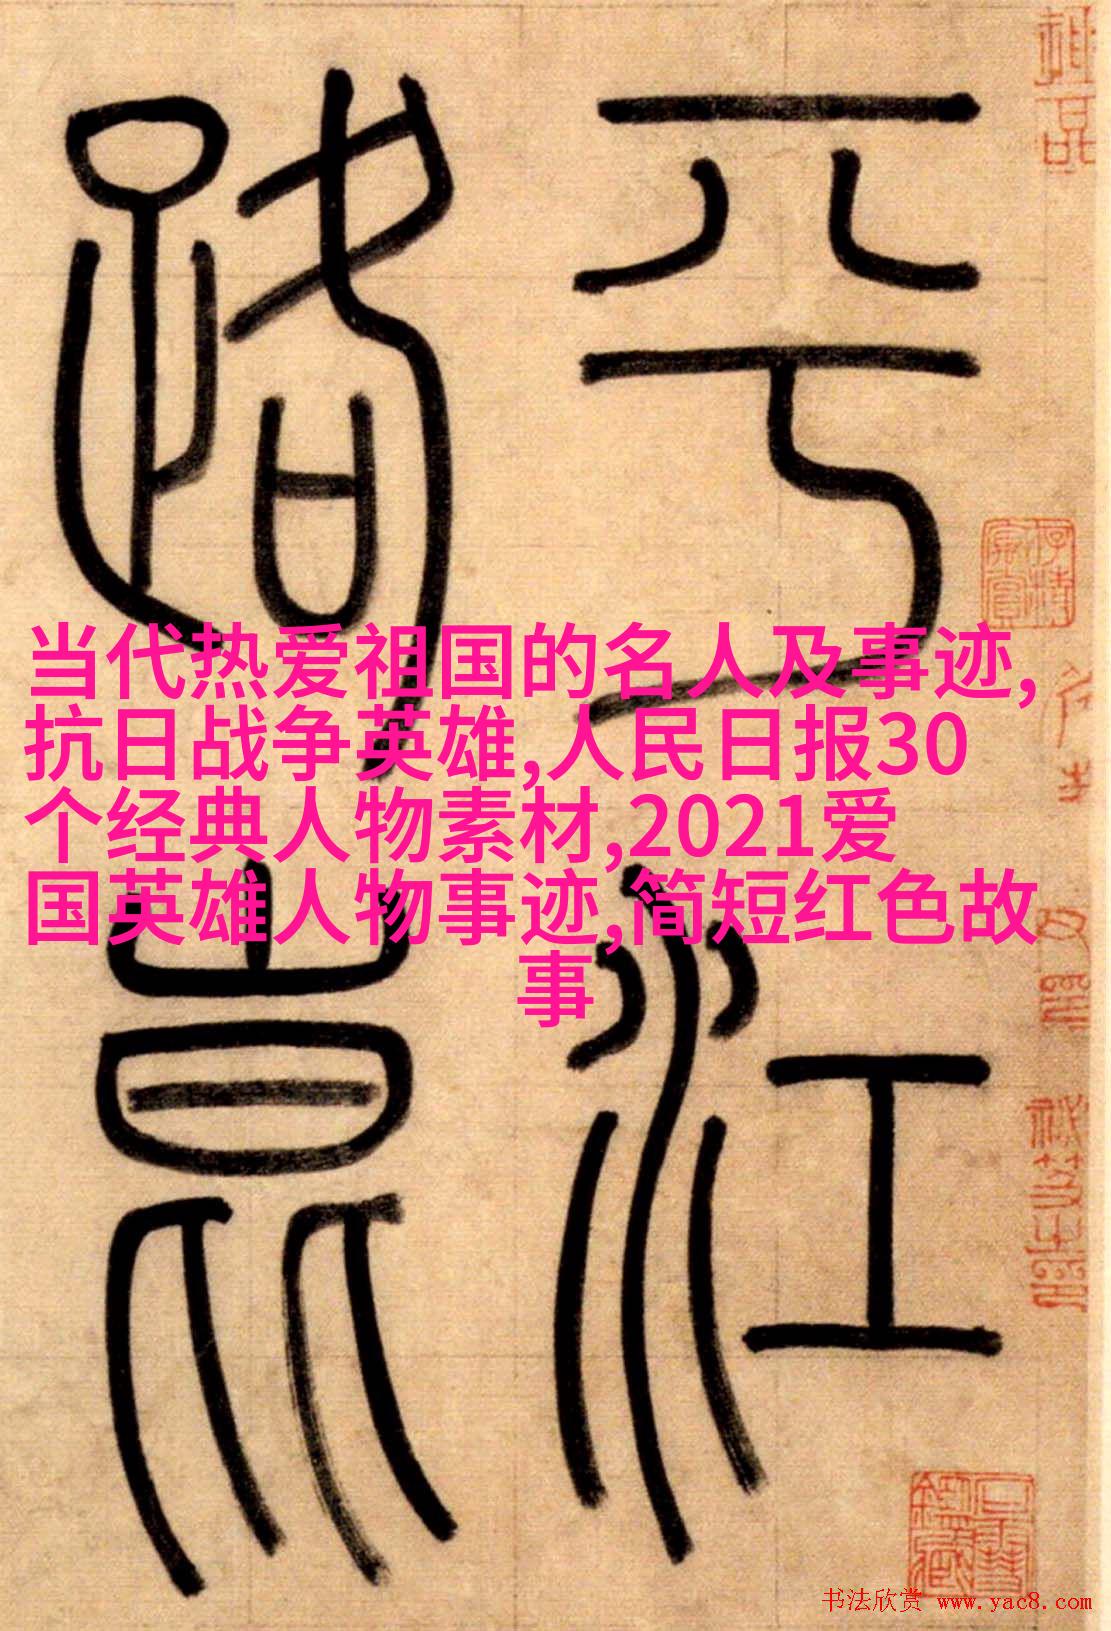 平江
路崑
当代热爱祖国的名人及事迹,
抗日战争英雄,人民日报30
个经典人物素材,2021爱
国英雄人物事迹,简短红色故
事
书法欣赏 www.yac8.com